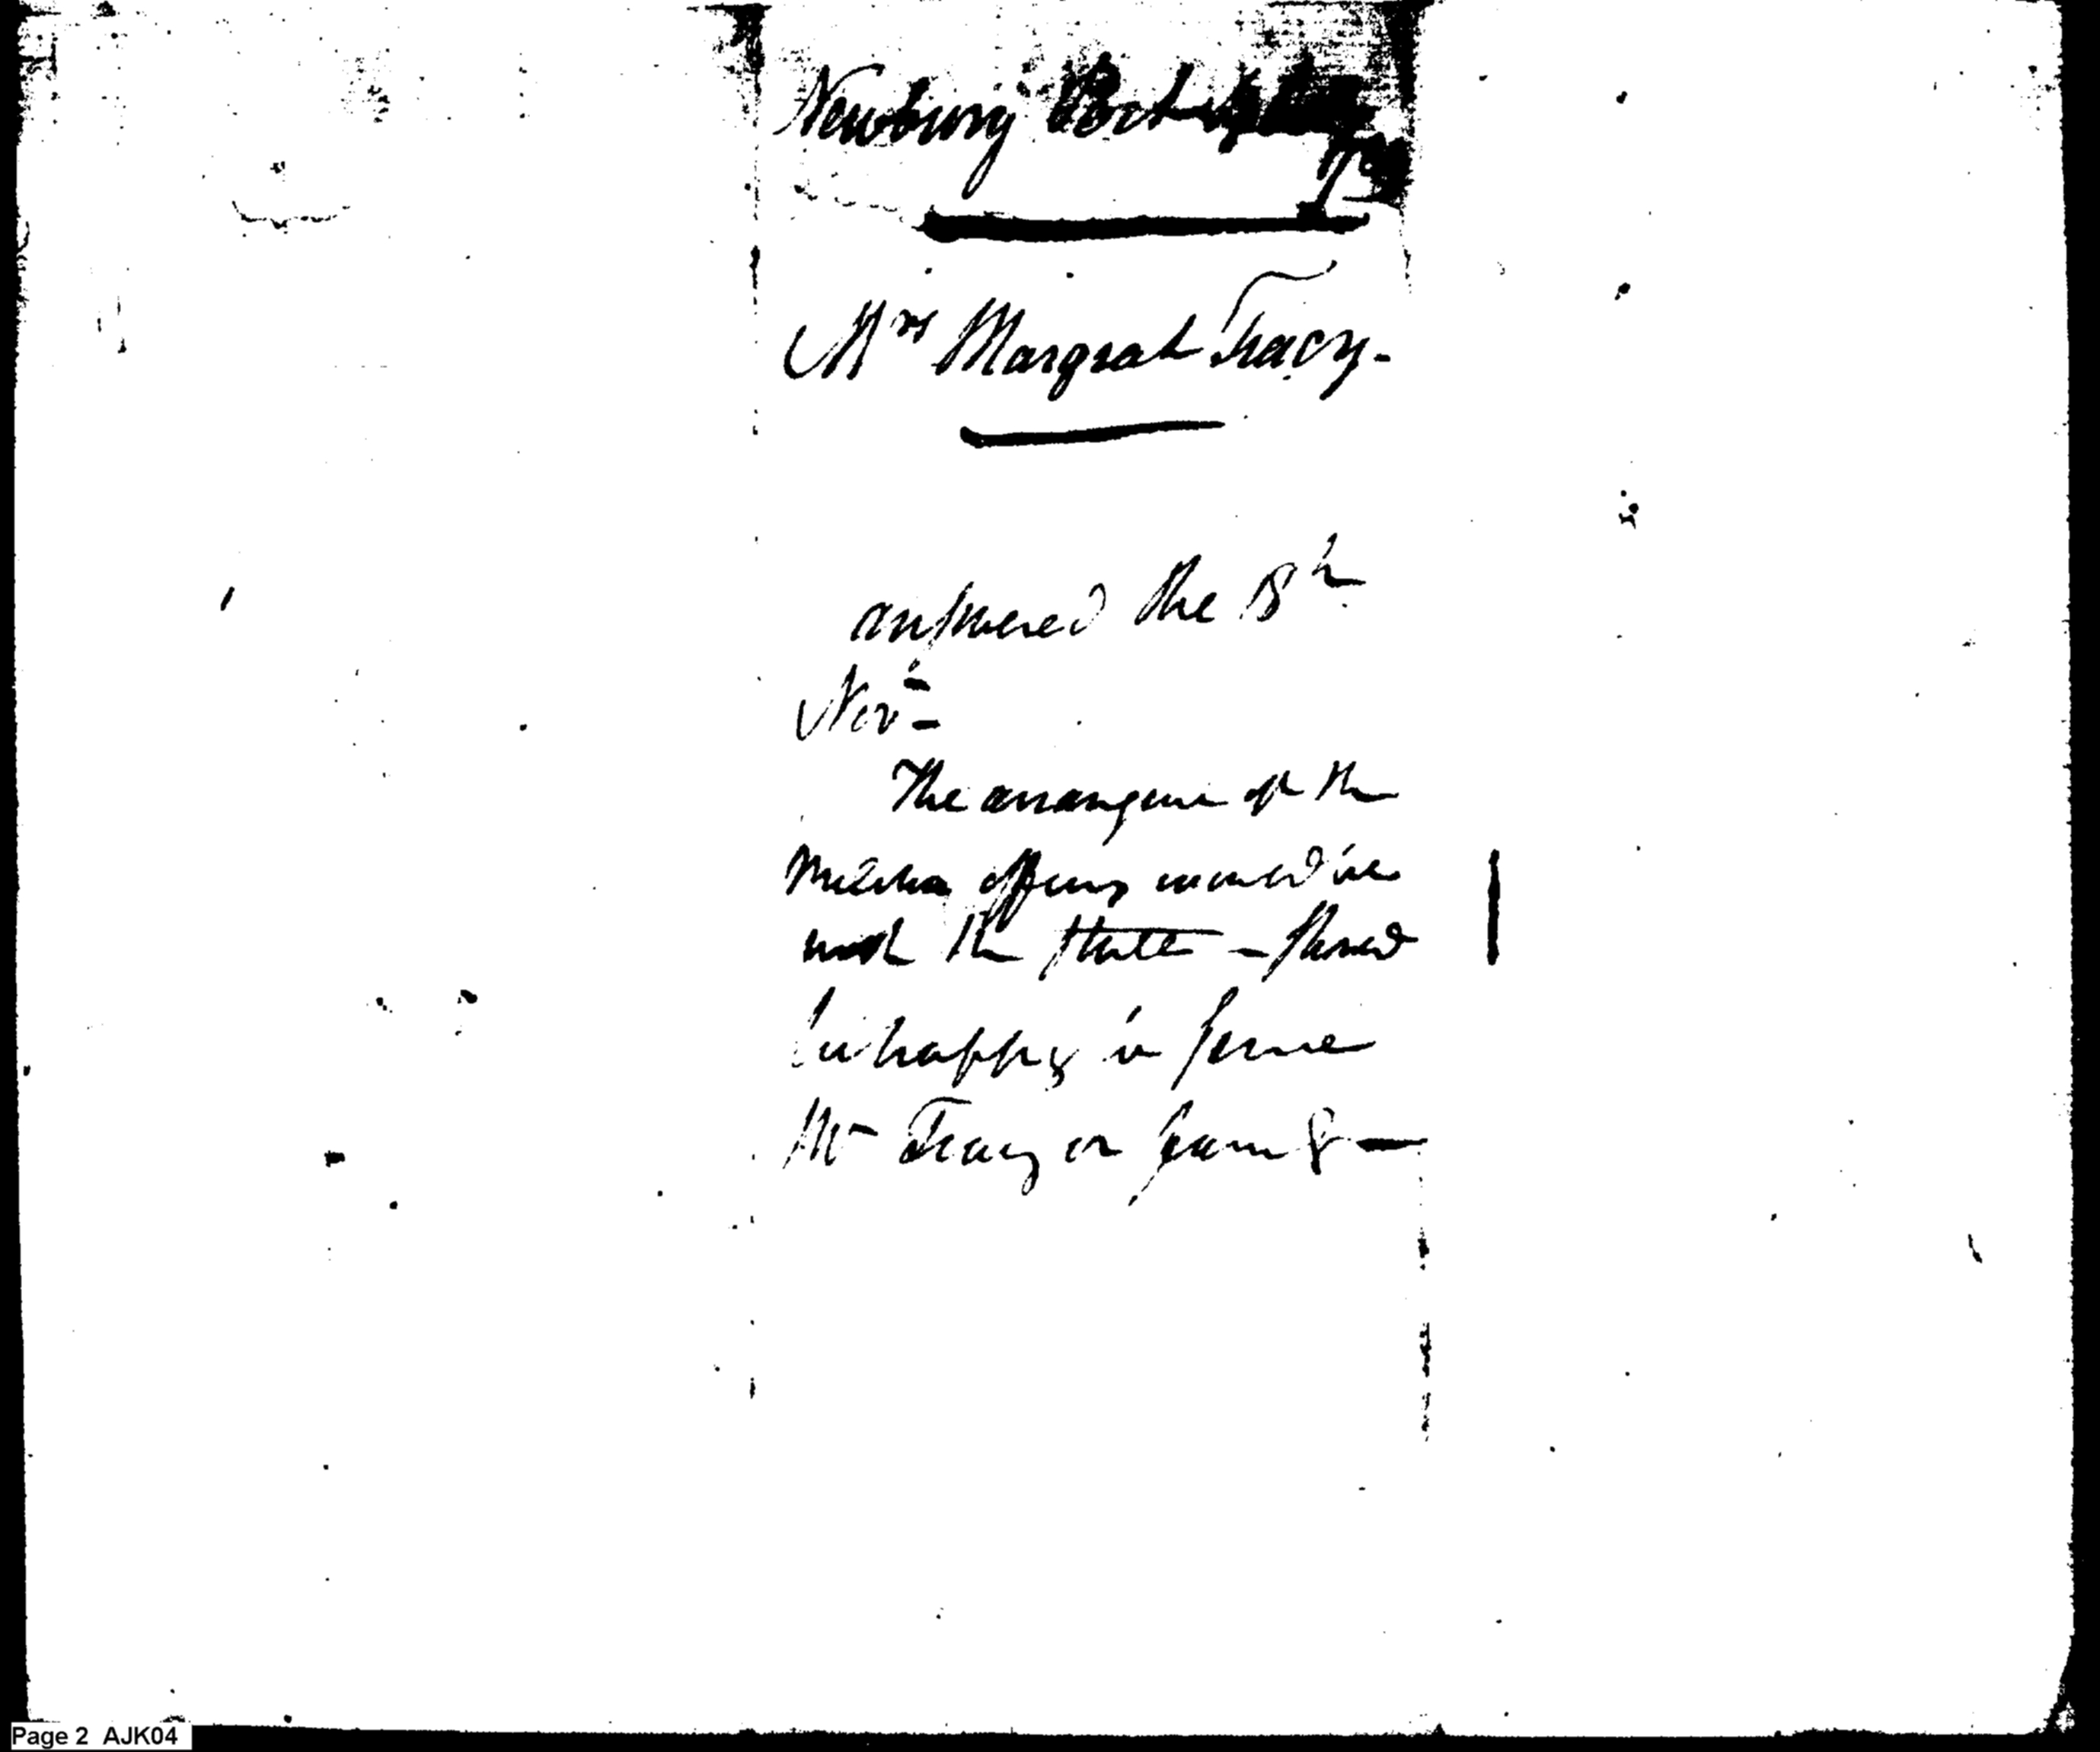 Newbury Port
Mrs Margrat Tracy.
answered the 18h
Nov
The arrangeme of the
Militia officers would be
with the State - should
be happy to serve
Mr Tracy or family
Page 2 AJK04